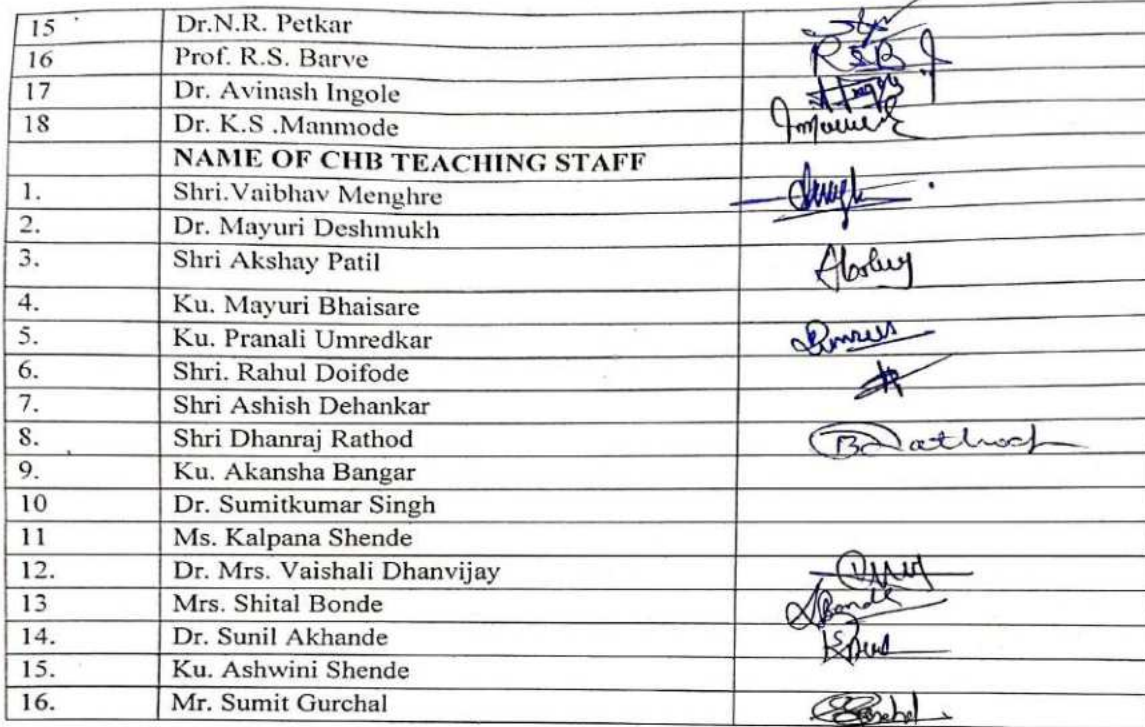 15 Dr.N.R. Petkar
16 Prof. R.S. Barve RSB
17 Dr. Avinash Ingole
18 Dr. K.S .Manmode
NAME OF CHB TEACHING STAFF
1. Shri.Vaibhav Menghre
2. Dr. Mayuri Deshmukh
3. Shri Akshay Patil
4. Ku. Mayuri Bhaisare
5. Ku. Pranali Umredkar
6. Shri. Rahul Doifode
7. Shri Ashish Dehankar
8. Shri Dhanraj Rathod
9. Ku. Akansha Bangar
10 Dr. Sumitkumar Singh
11 Ms. Kalpana Shende
12. Dr. Mrs. Vaishali Dhanvijay
13 Mrs. Shital Bonde
14. Dr. Sunil Akhande
15. Ku. Ashwini Shende
16. Mr. Sumit Gurchal